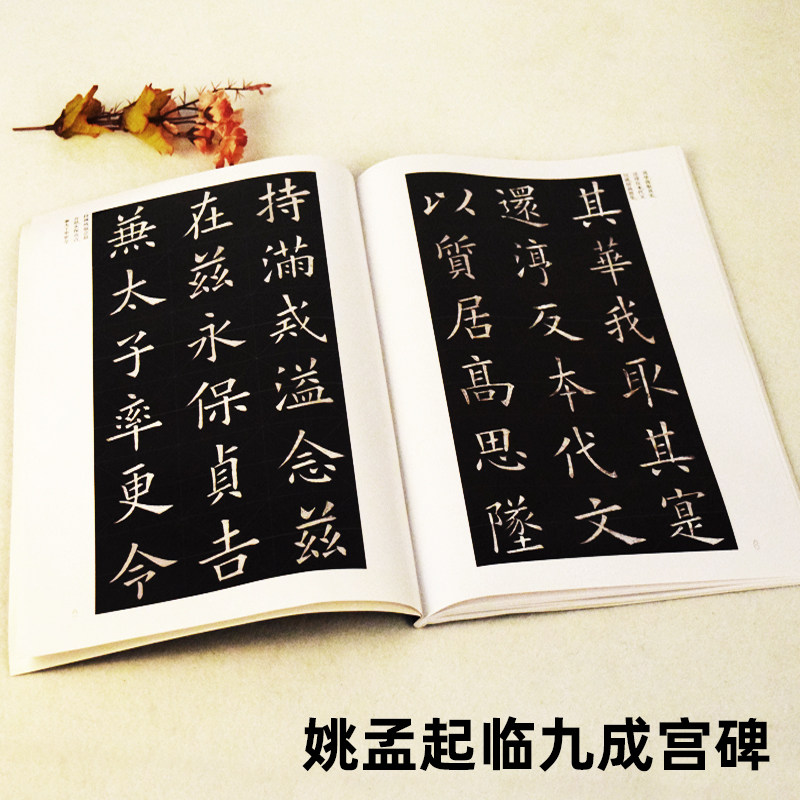 其華我取其寔
還淳反本代文
以質居高思墜
持滿戒溢念茲
在茲永保貞吉
兼太子率更令
姚孟起临九成宫碑